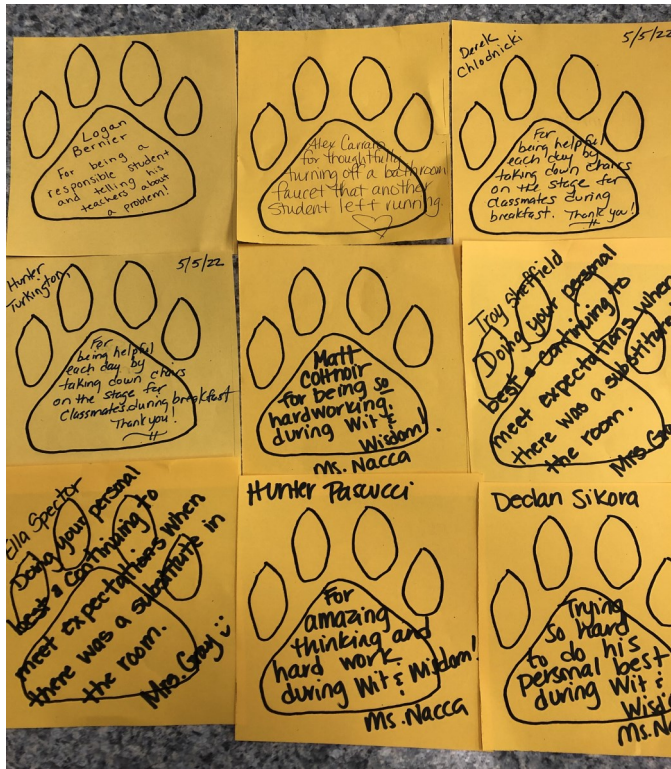 Logan
Bernier
For being a
responsible student
and telling his
teachers about
a problem!
Alex Carraro
for thoughtfully
turning off a bathroom
faucet that another
student left running.
Derek
Chlodnicki
5/5/22
For
being helpful
each day by
taking down chairs
on the stage for
classmates during
breakfast.
Thank you!
Hunter
Turkington
5/5/22
For
being helpful
each day by
taking down chairs
on the stage for
classmates during breakfast
Thank you!
Matt
for being so
hardworking
during Wit &
Wisdom!
Ms. Nacca
Troy Sheffield
Doing your personal
best & continuing to
meet expectations when
there was a substitute
the room.
Mrs. Gray
Ella Spector
Doing your personal
best & continuing to
meet expectations when
there was a substitute in
the room.
Mrs. Gray
Hunter Pascucci
For
amazing
thinking and
hard work
during Wit &
Wisdom!
Ms. Nacca
Declan Sikora
Trying
so hard
to do his
personal best
during Wit &
Wisd
Ms. N